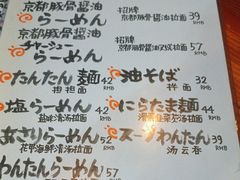 京都豚骨醤油
らーめん
招牌
京都豚骨醤油拉面 39 RMB
京都豚骨醤油
チャーシュー
らーめん
招牌
京都豚骨醤油叉烧拉面 57 RMB
たんたん麺 42 RMB
担担面
油そば 32 RMB
拌面
塩らーめん 42
盐味清汤拉面
にらたま麺 52
あさりらーめん 52
花甲海鲜清汤拉面 RMB
スープわんたん 39
汤云吞 RMB
わんたんらーめん 57